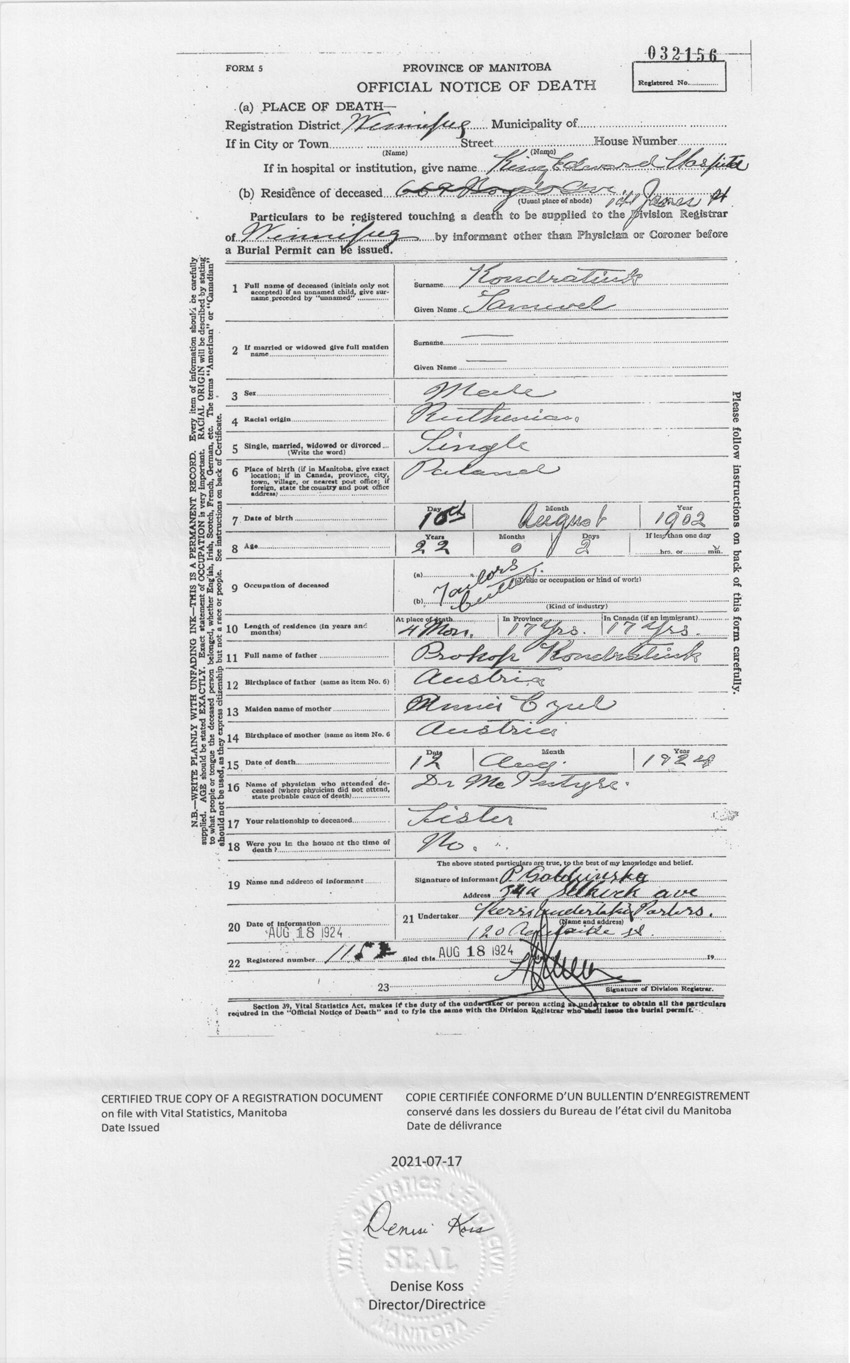 032156
FORM 5 PROVINCE OF MANITOBA
OFFICIAL NOTICE OF DEATH
Registered No.
(a) PLACE OF DEATH—
Registration District Winnipeg Municipality of
If in City or Town Street House Number
(Name) (Name)
If in hospital or institution, give name King Edward Hospital
(b) Residence of deceased
(Usual place of abode)
Particulars to be registered touching a death to be supplied to the Division Registrar
of Winnipeg by informant other than Physician or Coroner before
a Burial Permit can be issued.
N.B.—WRITE PLAINLY WITH UNFADING INK—THIS IS A PERMANENT RECORD. Every item of information should be carefully
supplied. AGE should be stated EXACTLY. Exact statement of OCCUPATION is very important. RACIAL ORIGIN will be described by stating
to what people or tongue the deceased person belonged, whether English, Irish, Scotch, French, German, etc. The terms "American" or "Canadian"
should not be used, as they express citizenship but not a race or people. See instructions on back of Certificate.
1 Full name of deceased (initials only not
accepted) if an unnamed child, give sur-
name preceded by "unnamed"
Surname Kondratiuk
Given Name Samuel
2 If married or widowed give full maiden
name
Surname
Given Name
3 Sex Male
4 Racial origin Ruthenian
5 Single, married, widowed or divorced
(Write the word) Single
6 Place of birth (if in Manitoba, give exact
location; if in Canada, province, city,
town, village, or nearest post office; if
foreign, state the country and post office
address) Poland
7 Date of birth Day 10th Month August Year 1902
8 Age Years 22 Months 0 Days 2 If less than one day
hrs. or min.
9 Occupation of deceased
(a) Tailors
(Trade or occupation or kind of work)
(b) cutter
(Kind of industry)
10 Length of residence (in years and
months)
At place of death 4 Mon. In Province 17 Yrs. In Canada (if an immigrant) 17 Yrs.
11 Full name of father Prokop Kondratiuk
12 Birthplace of father (same as item No. 6) Austria
13 Maiden name of mother Annie
14 Birthplace of mother (same as item No. 6 Austria
15 Date of death Date 12 Month Aug. Year 1924
16 Name of physician who attended de-
ceased (where physician did not attend,
state probable cause of death) Dr
17 Your relationship to deceased Sister
18 Were you in the house at the time of
death? No.
The above stated particulars are true, to the best of my knowledge and belief.
19 Name and address of informant
Signature of informant P.
Address Selkirk ave
20 Date of information
AUG 18 1924
21 Undertaker Kerrs Undertaking Parlors.
(Name and address)
120
22 Registered number filed this AUG 18 1924 19
23
Signature of Division Registrar.
Please follow instructions on back of this form carefully.
Section 39, Vital Statistics Act, makes it the duty of the undertaker or person acting as undertaker to obtain all the particulars
required in the "Official Notice of Death" and to fyle the same with the Division Registrar who shall issue the burial permit.
CERTIFIED TRUE COPY OF A REGISTRATION DOCUMENT
on file with Vital Statistics, Manitoba
Date Issued
COPIE CERTIFIÉE CONFORME D'UN BULLENTIN D'ENREGISTREMENT
conservé dans les dossiers du Bureau de l'état civil du Manitoba
Date de délivrance
2021-07-17
Denise Koss
SEAL
MANITOBA
Denise Koss
Director/Directrice